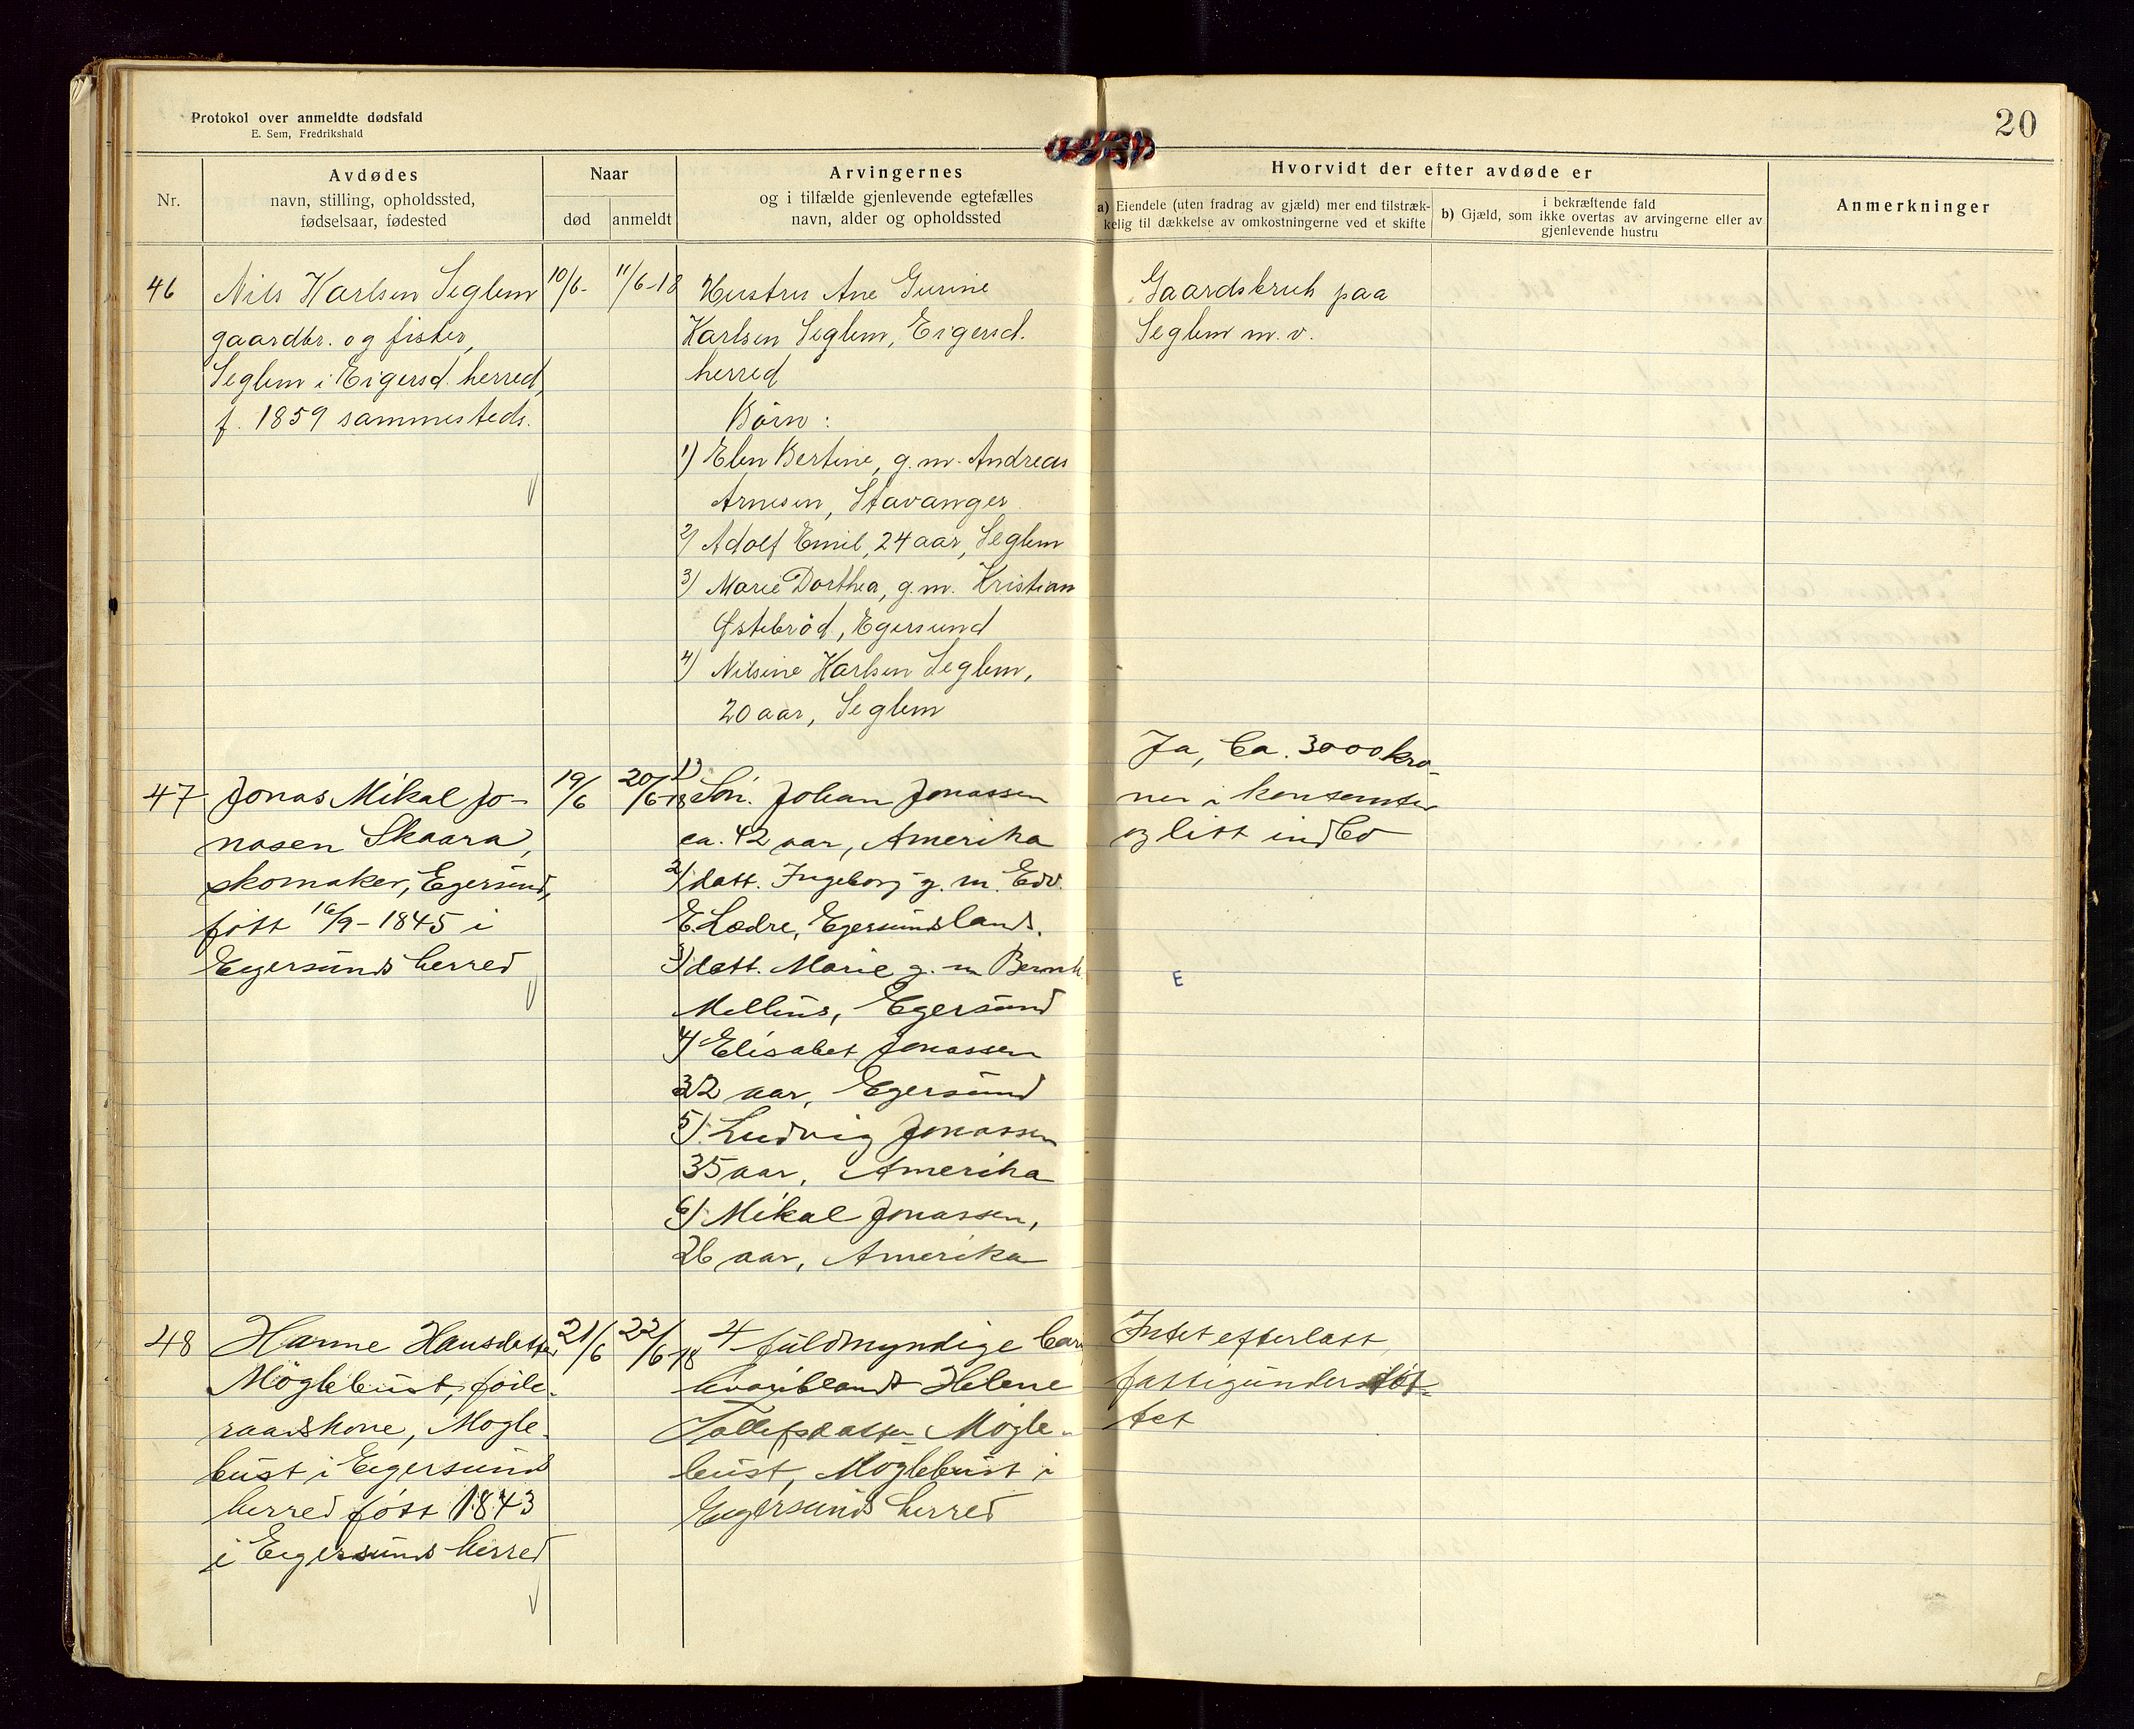 Protokol over anmeldte dødsfald
E. Sem, Fredrikshald
20
Nr.
Avdødes
navn, stilling, opholdssted,
fødselsaar, fødested
Naar
død
anmeldt
Arvingernes
og i tilfælde gjenlevende egtefælles
navn, alder og opholdssted
Hvorvidt der efter avdøde er
a) Eiendele (uten fradrag av gjæld) mer end tilstræk-
kelig til dækkelse av omkostningerne ved et skifte
i bekræftende fald
b) Gjæld, som ikke overtas av arvingerne eller av
gjenlevende hustru
Anmerkninger
46
Nils Karlsen Seglem
gaardbr. og fisker,
Seglem i Eigersd. herred,
f. 1859 sammesteds.
10/6-
11/6-18
Hustru Ane Gurine
Karlsen Seglem, Eigersd.
herred
Børn:
1) Elen Bertine, g.m. Andreas
Arnesen, Stavanger
2) Adolf Emil, 24 aar, Seglem
3) Marie Dorthea, g.m. Kristian
Østebrød, Egersund
4) Nilsine Karlsen Seglem,
20 aar, Seglem
Gaardsbruk paa
Seglem m.v.
47
Jonas Mikal Jo-
nasen Skaara,
skomaker, Egersund,
født 16/9-1845 i
Eigersunds herred
19/6
20/6-18
1) Søn. Johan Jonassen
ca. 42 aar, Amerika
2) datt. Ingeborg g.m. Edv.
E. Lædre, Egersunds land.
3) datt. Marie g.m Bernh.
Mellius, Egersund
4) Elisabet Jonassen
32 aar, Egersund
5) Ludvig Jonassen
35 aar, Amerika
6) Mikal Jonassen,
26 aar, Amerika
Ja, Ca. 3000 kro-
ner i kontanter
og litt indbo
E
48
Hanne Hansdatter
Møglebust, føde-
raadskone, Mogle-
bust i Eigersunds
herred født 1843
i Eigersunds herred
21/6
22/6-18
4 fuldmyndige barn
hvoriblandt Helene
Tollefsdatter Møgle-
bust, Moglebust i
Eigersunds herred
Intet efterlatt
fattigunderstøt-
tet